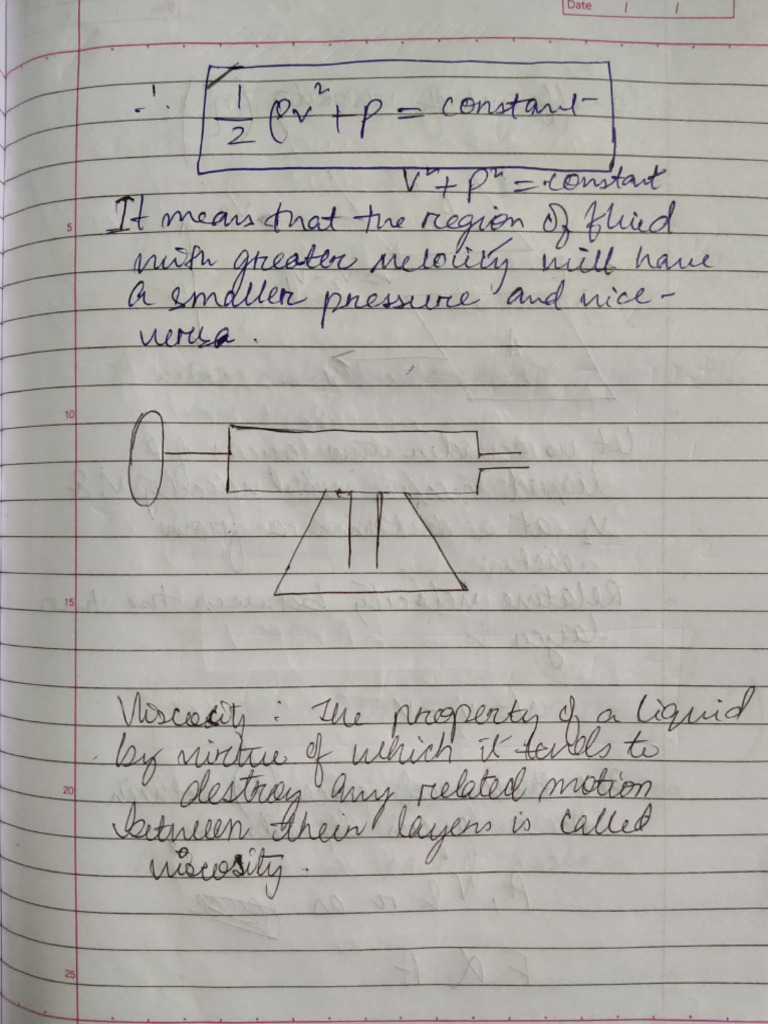 Date / /
∴ 1/2 ρv² + p = constant
v² + p² = constant
5
It means that the region of fluid
with greater velocity will have
a smaller pressure and vice-
versa.
10
15
Viscosity : The property of a liquid
by virtue of which it tends to
20
destroy any related motion
between their layers is called
viscosity.
25